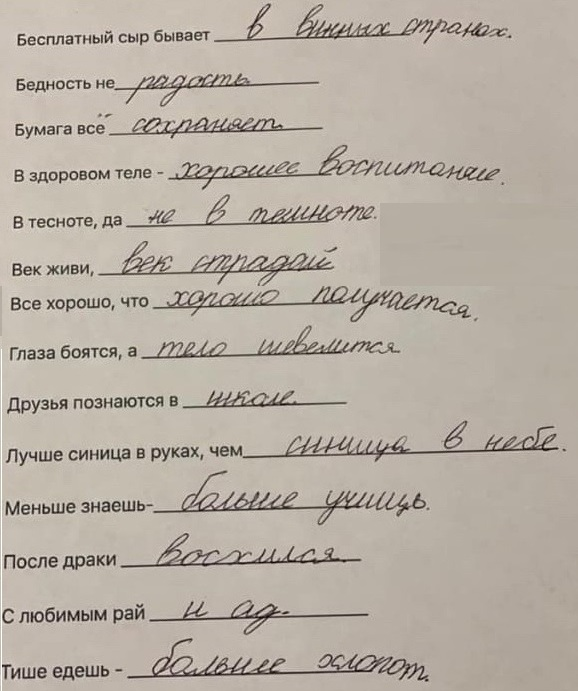 Бесплатный сыр бывает в винных странах.
Бедность не радость.
Бумага всё сохраняет.
В здоровом теле - хорошее воспитание.
В тесноте, да не в темноте.
Век живи, век страдай
Все хорошо, что хорошо получается.
Глаза боятся, а тело шевелится
Друзья познаются в школе.
Лучше синица в руках, чем синица в небе.
Меньше знаешь- больше учишь.
После драки
С любимым рай и ад.
Тише едешь - больше хлопот.